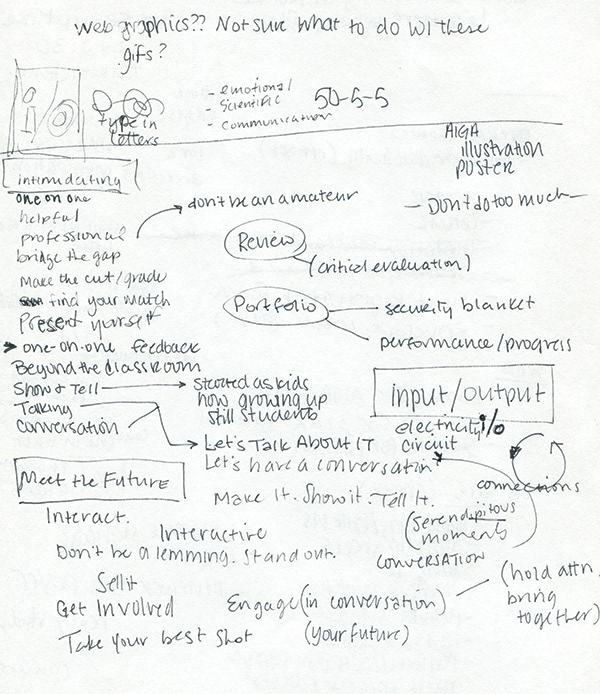 web graphics?? Not sure what to do w/ these
gifs?
i/o
type in
letters
- emotional
- scientific
- communication
50-5-5
AIGA
illustration
poster
intimidating
one on one
helpful
professional
bridge the gap
make the cut/grade
find your match
Present yourself
one-on-one feedback
Beyond the classroom
Show & Tell
Talking
conversation
don't be an amateur
— Don't do too much —
Review
(critical evaluation)
Portfolio
security blanket
performance/progress
started as kids
now growing up
still students
Let's Talk About IT
Let's have a conversation
input/output
electricity i/o
circuit
connections
Meet the Future
Make It. Show it. Tell It.
(serendipitous
moments
conversation
Interact.
Interactive
Don't be a lemming. Stand out.
Sell it
Get Involved
Take your best shot
Engage (in conversation)
(your future)
(hold attn,
bring
together)